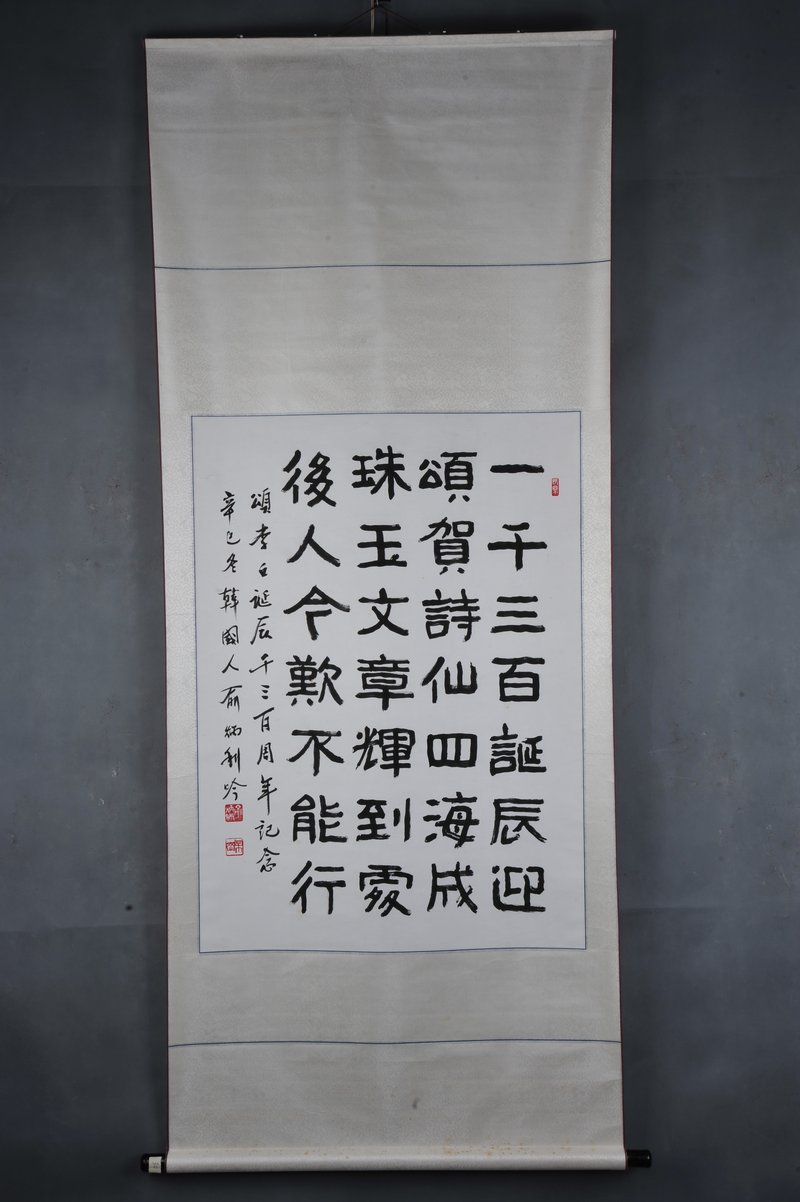 一千三百誕辰迎
頌賀詩仙四海成
珠玉文章輝到處
後人今歎不能行
頌李白誕辰千三百周年記念
辛巳冬韓國人俞炳利吟